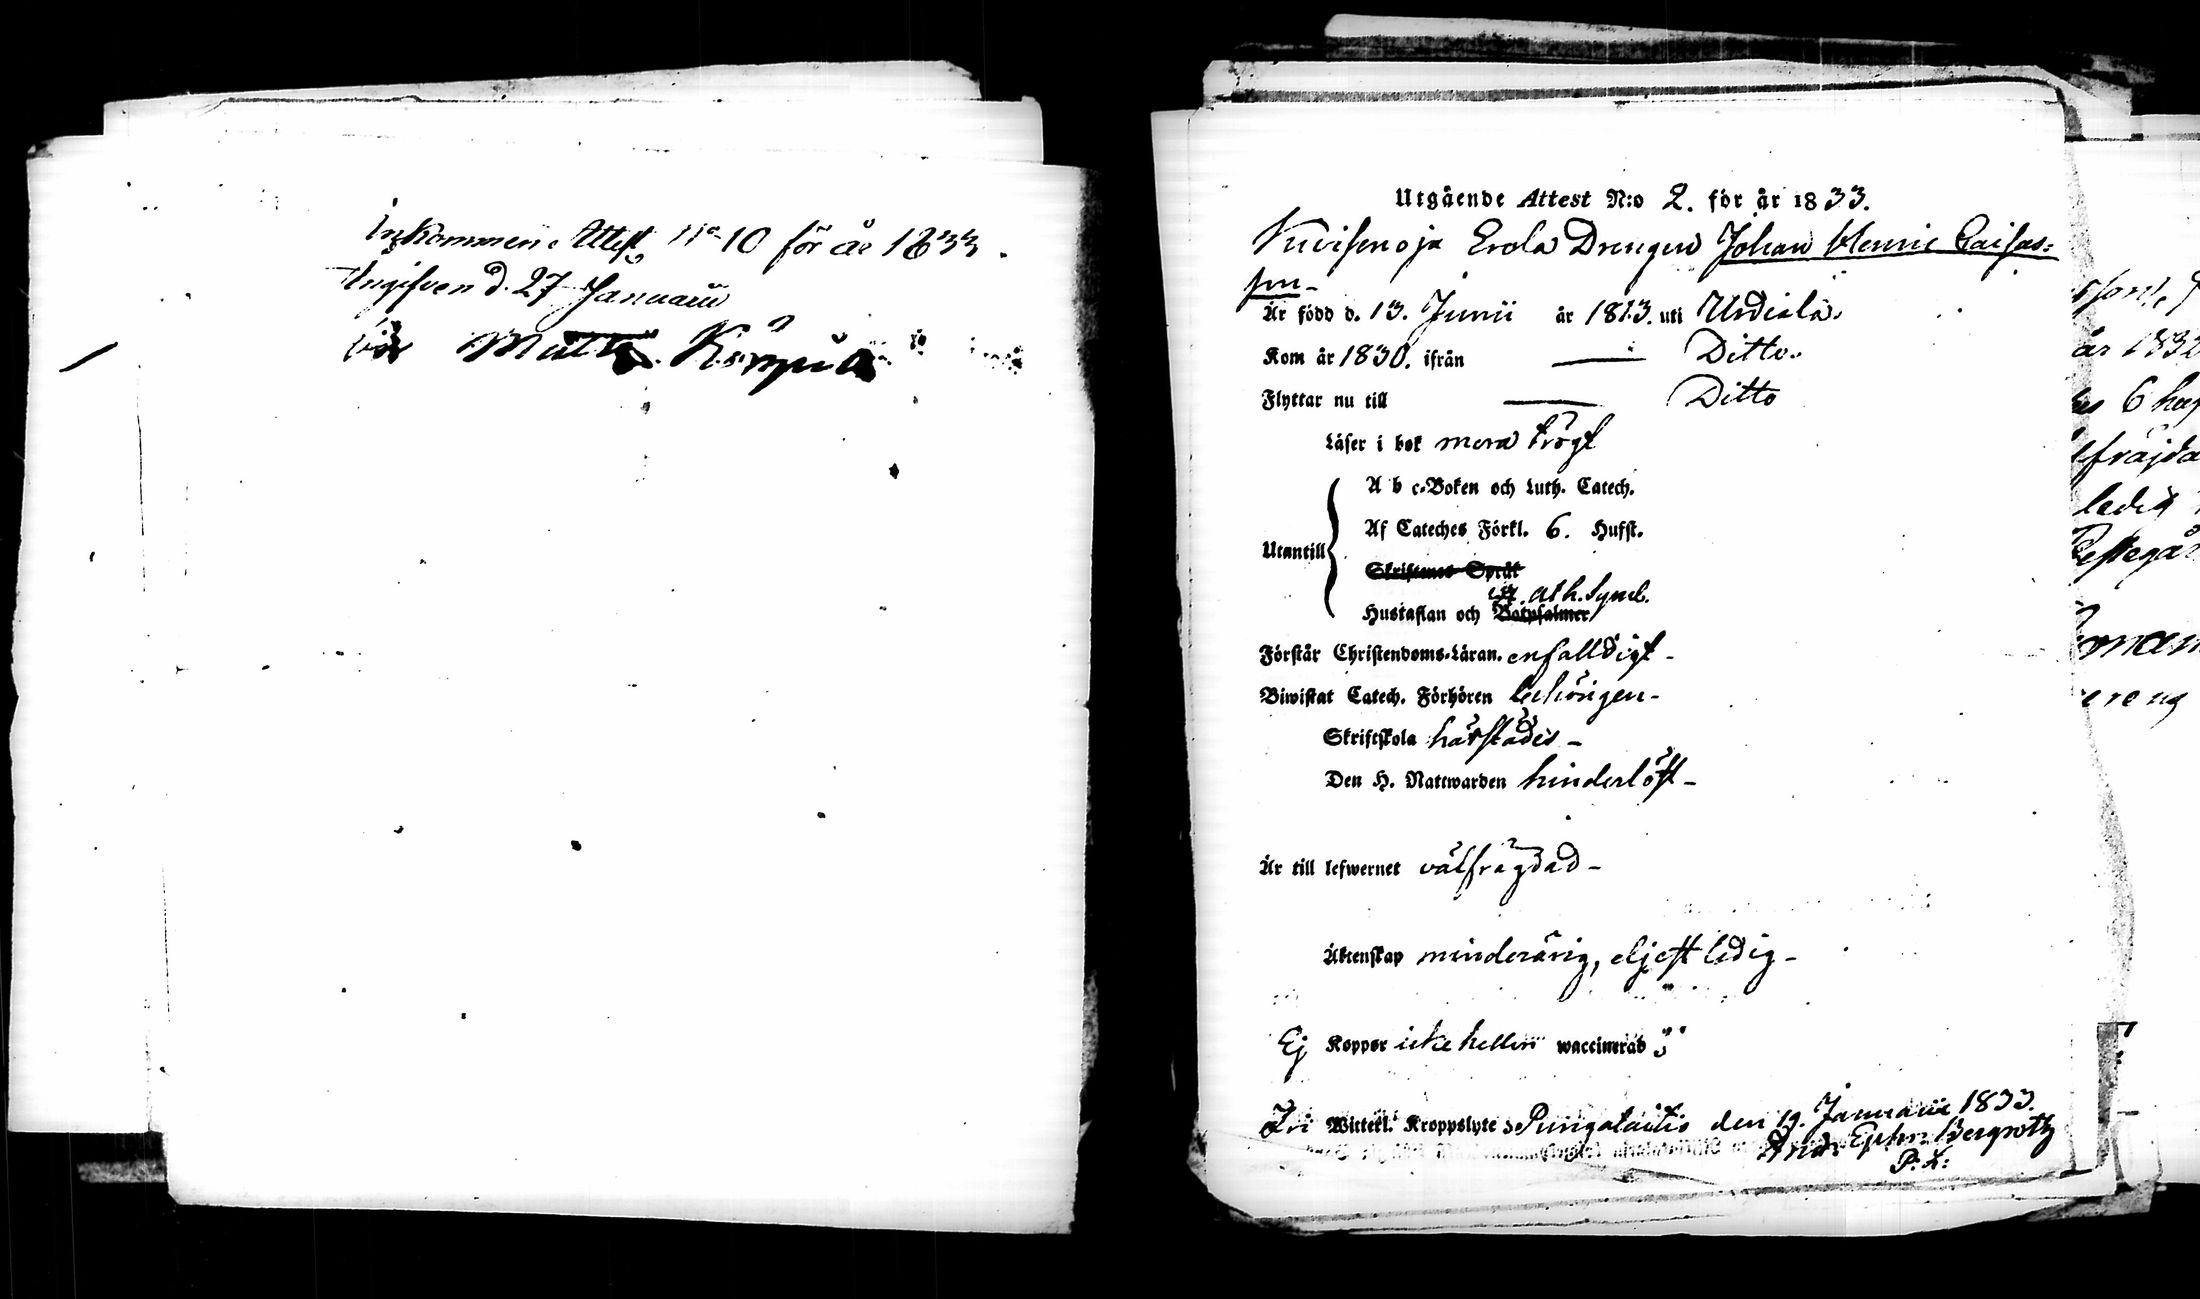 Inkommen Attest No 10 för år 1833.
Angifven d. 27 Januarii
Matts
Utgående Attest N:o 2. för år 1833.
Erola Drengen Johan Henric Caisas-
son-
Är född d. 13. Junii år 1813. uti Urdiala.
Kom år 1830. ifrån — Ditto.
Flyttar nu till — Ditto
Läser i bok mera trögt
A b c-Boken och Luth. Catech.
Af Cateches Förkl. 6. Hufst.
Utantill
Skriftenes Språk
Ath. Symb.
Hustaflan och Botpsalmer
Förstår Christendoms-Läran. enfalldigt -
Biwistat Catech. Förhören behörigen -
Skriftskola härstädes -
Den H. Nattwarden hinderlöst -
Är till lefwernet välfrägdad -
Äktenskap minderårig, eljest ledig -
Ej Koppor icke heller waccinerad
Fri Witterl. Kroppslyte Pungalaitio den 19. Januarii 1833.
And: Ephr: Bergroth
P: L:
år 1832
6
ledig